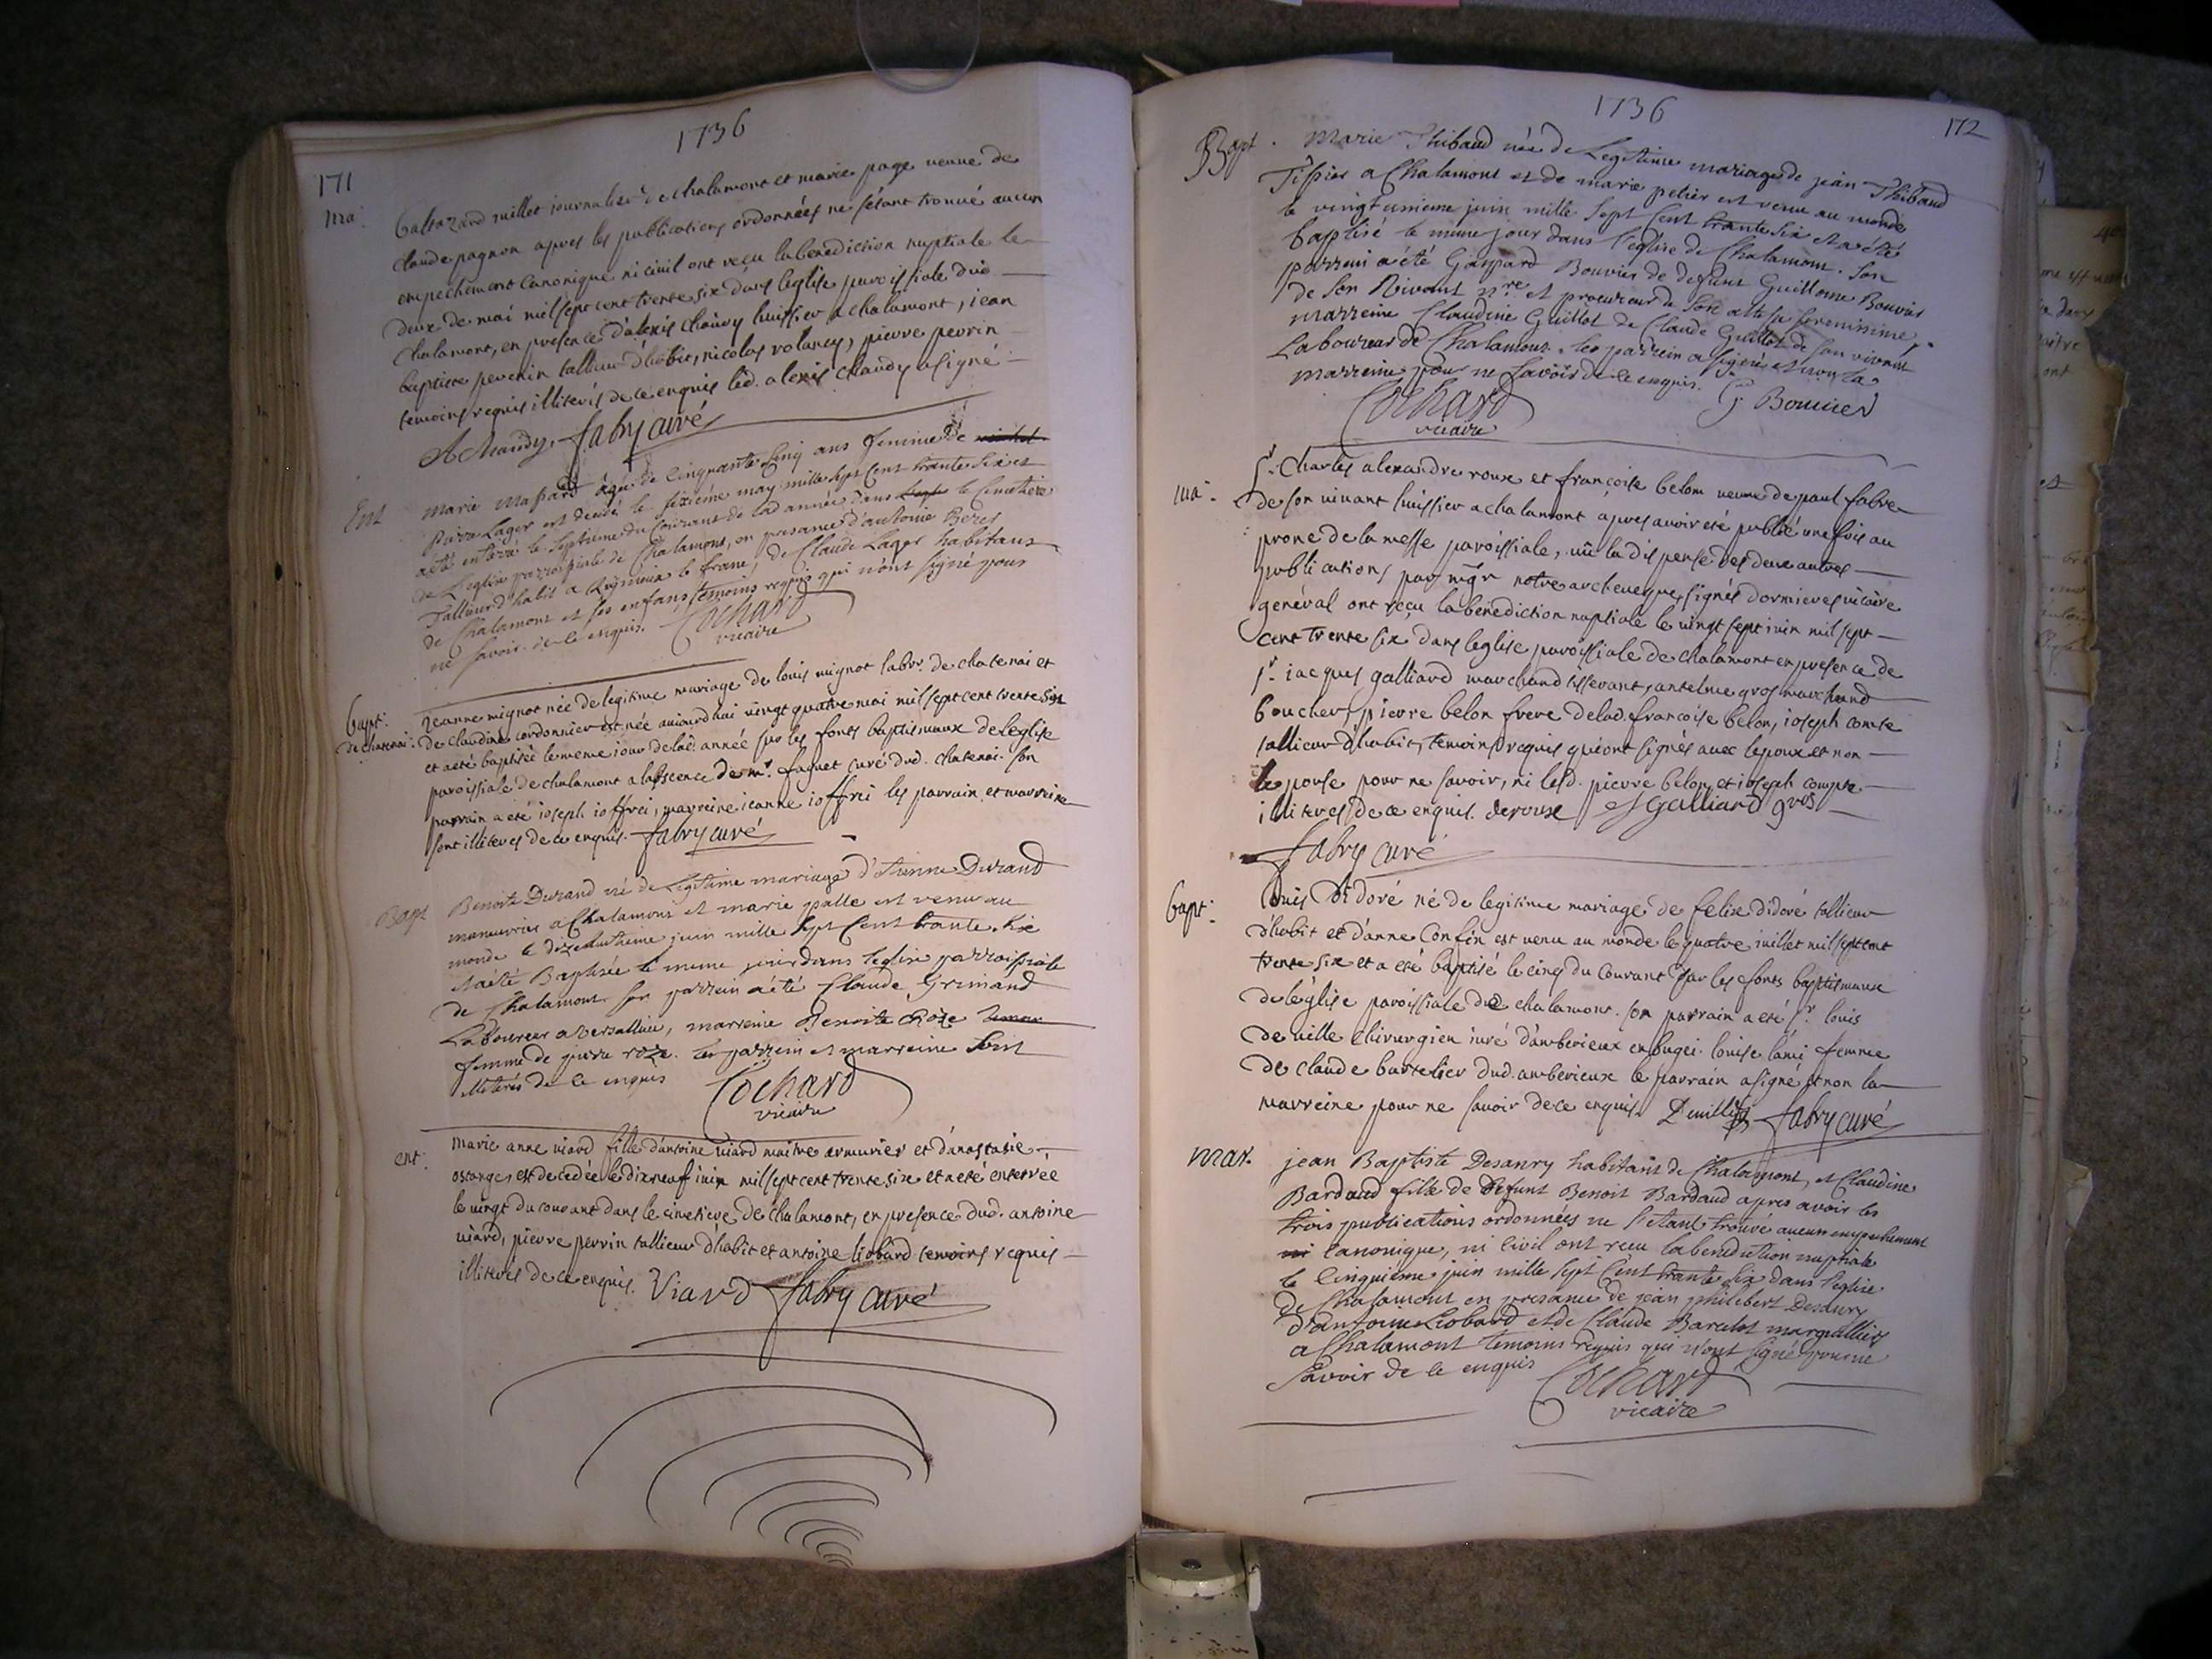 1736
171
ma: baltazard millet journalier de chalamont et marie page veuve de
claude pagnon apres les publications ordonnées ne sétant trouvé aucun
empechement canonique ni civil ont reçu la benediction nuptiale le
deux de mai mil sept cent trente six dans leglise paroissiale dud.
chalamont, en presence d'alexis chaudy huissier a chalamont, jean
baptiste perrin tallieur d'habit, nicolas volancy, pierre perrin
temoins requis illiterés de ce enquis led. alexis chaudy a signé
A Chaudy. fabry curé
Ent marie massard agée de cinquante cinq ans femme de
Lager est decedé le sixieme may mille sept cent trante six et
a été enterré le septieme du courant de lad année dans le Cimetiere
de L'eglise parroissiale de Chalamont, en presance d'antoine
Tallieur d'habit a le franc, de Claude Lager habitans
de Chalamont et ses enfans temoins requis qui n'ont signé pour
ne savoir de ce enquis. Cochard
vicaire
bapt: de chatenai: jeanne mignot née de legitime mariage de louis mignot labr. de chatenai et
de claudine cordonnier est née aujourdhui vingt quatre mai mil sept cent trente six
et a eté baptisée le meme jour delad. année sur les fonts baptismaux de leglise
paroissiale de chalamont a labscence de mr. faguet curé dud. chatenai. son
parrain a eté joseph joffrei, marreine jeanne joffrei les parrain et marreine
sont illiterés de ce enquis. fabry curé
Bapt Benoite Durand né de Legitime mariage d'Etienne Durand
manouvrier a Chalamont et marie palle est venu au
monde le juin mille sept Cent trante six
et a été Baptisée le meme jour dans l'eglise parroissiale
de Chalamont son parrein a été Claude Grimaud
Laboureur a versallieu, marreine Benoite Roze
femme de pierre roze. les parrein et marreine sont
illiterés de ce enquis Cochard
vicaire
ent: marie anne viard fille d'antoine viard maitre armurier et d'anastasie
ostanges est decedée le dixneuf juin mil sept cent trente six et a eté enterrée
le vingt du courant dans le cimetiere de chalamont, en presence dud. antoine
viard, pierre perrin tallieur d'habit et antoine liobard temoins requis
illiterés de ce enquis. Viard fabry curé
1736
172
Bapt. Marie Thibaud née de Legitime mariage de jean Thibaud
Tissier a Chalamont et de marie petier est venu au monde
le vingt unieme juin mille sept Cent trante six et a été
baptisé le meme jour dans l'eglise de Chalamont. son
parrein a été Gaspard Bouvier de defunt Guillaume Bouvier
de son Vivant nre. et procureur de son altesse serenissime,
marreine Claudine Guillot de Claude Guillot de son vivant
Laboureur de Chalamont. les parrein a signé et non la
marreine pour ne savoir de ce enquis. G Bouvier
Cochard
vicaire
ma: Sr. Charles alexandre roux et françoise belon veuve de paul fabre
de son vivant huissier a chalamont apres avoir eté publié une fois au
prone de la messe paroissiale, vû la dispense des deux autres
publications par mgr notre archeveque, signés dormieres vicaire
general ont reçu la benediction nuptiale le vingt sept juin mil sept
cent trente six dans leglise paroissiale de chalamont en presence de
sr. jacques galliard marchand tisserant, antelme gros marchand
boucher, pierre belon frere delad. francoise belon, joseph comte
tallieur d'habit, temoins requis qui ont signés avec lepoux et non
lepouse pour ne savoir, ni lesd. pierre belon et joseph compte
illiterés de ce enquis. deroux J Galliard gros
fabry curé
bapt: louis Didoré né de legitime mariage de felix didoré tallieur
d'habit et d'anne Confin est venu au monde le quatre juillet mil sept cent
trente six et a eté baptisé le cinq du courant sur les fonts baptismaux
de léglise paroissiale dud chalamont. son parrain a eté sr. louis
deville chirurgien juré d'amberieux en bugei. louise lami femme
de claude bartelier dud. amberieux le parrain a signé et non la
marreine pour ne savoir de ce enquis. Deville fabry curé
mar. jean Baptiste Desanry habitant de Chalamont, et Claudine
Bardaud fille de defunt Benoit Bardaud apres avoir les
trois publications ordonnées ne s'étant trouvé aucun empechement
ni canonique, ni civil ont recu la benediction nuptiale
le Cinquieme juin mille sept Cent trante six dans l'eglise
de Chalamont en presance de jean philibert Desanry
d'antoine Liobard et de Claude Barelot marguillier
a Chalamont temoins requis qui n'ont signé pour ne
savoir de ce enquis Cochard
vicaire